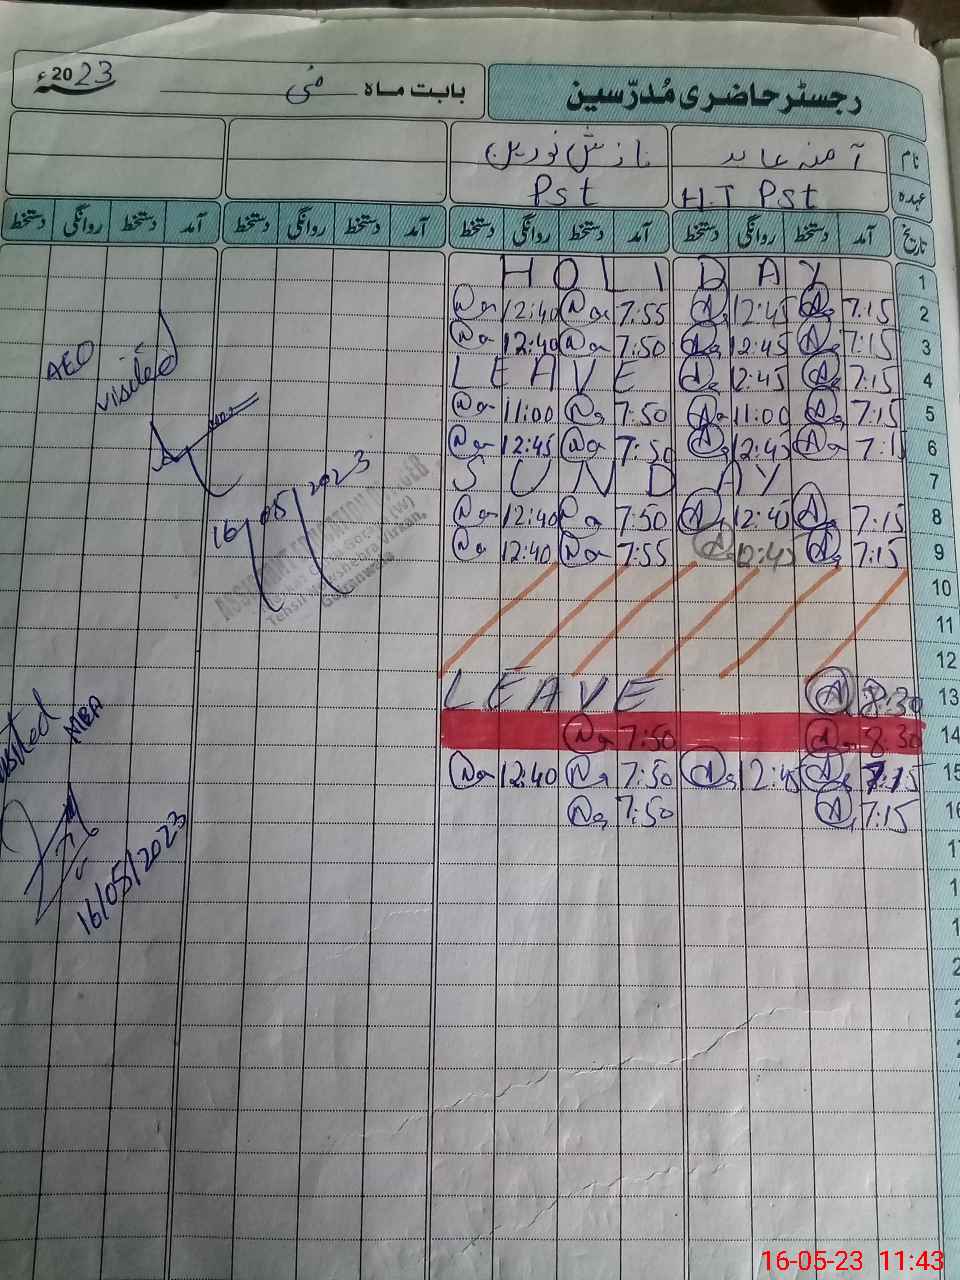 رجسٹر حاضری مُدرّسین
بابت ماہ مئی
2023ء
نام آمنہ عابد نازش نورین
عہدہ H.T Pst Pst
تاریخ آمد دستخط روانگی دستخط آمد دستخط روانگی دستخط آمد دستخط روانگی دستخط آمد دستخط روانگی دستخط
HOLIDAY 1
12:40 7:55 12:45 7:15 2
12:40 7:50 12:45 7:15 3
LEAVE 12:45 7:15 4
11:00 7:50 11:00 7:15 5
12:45 7:50 12:45 7:15 6
SUNDAY 7
12:40 7:50 12:45 7:15 8
12:40 7:55 12:45 7:15 9
10
11
12
LEAVE 8:30 13
7:50 8:30 14
12:40 7:50 12:45 7:15 15
7:50 7:15 16
AEO
visited
16/05/2023
visited
16/05/2023
16-05-23 11:43